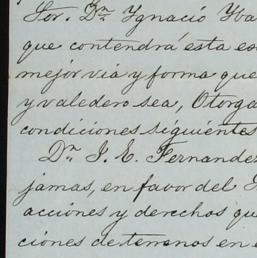 Sor. Dn Ygnacio Yba
que contendrá esta es
mejor via y forma que
y valedero sea, Otorga
condiciones siguientes
Dn J. E. Fernandez
jamas, en favor del
acciones y derechos qu
ciones de terrenos en